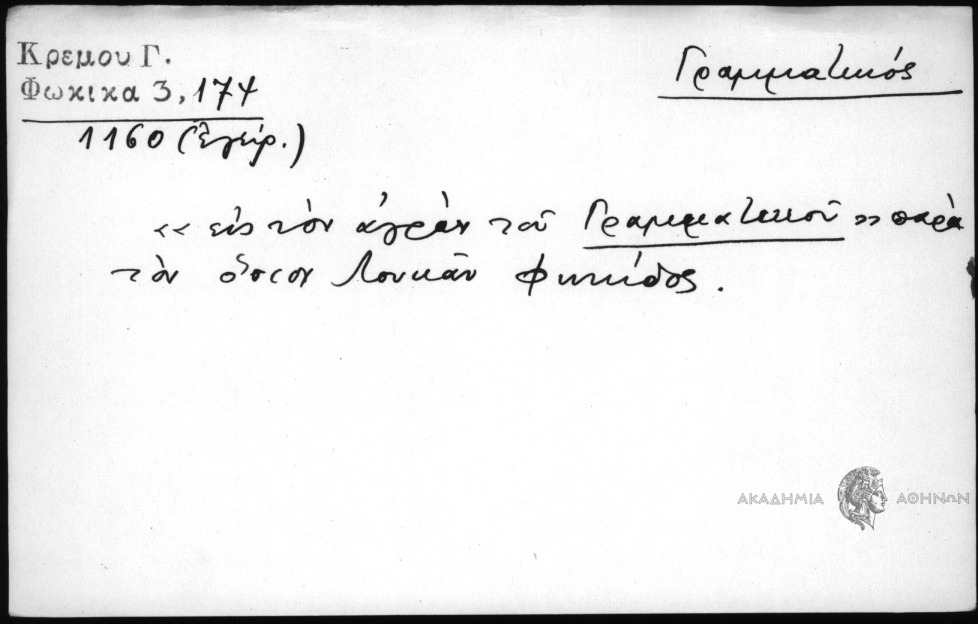 Κρεμου Γ.
Φωκικα 3, 174
1160 (ἔγγρ.)
Γραμματικός
«εἰς τὸν ἀγρὸν τοῦ Γραμματικοῦ» παρὰ
τὸν ὅσιον Λουκᾶν Φωκίδος.
ΑΚΑΔΗΜΙΑ ΑΘΗΝΩΝ